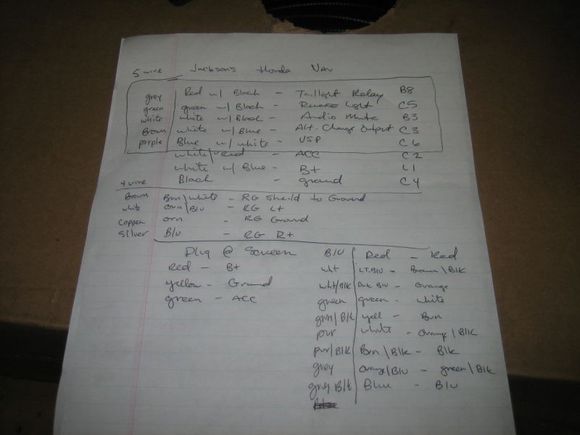 5 wire Jackson's Honda Nav
grey Red w/ Black - Taillight Relay B8
green green w/ Black - Reverse Light C5
white white w/ Black - Audio Mute B3
Brown white w/ Blue - Alt. Charge Output C3
purple Blue w/ white - VSP C6
white/red - ACC C2
white w/ Blue - B+ L1
Black - ground C4
4 wire
Brown Brn/white - RG Sheild to Ground
white orn/Blu - RG L+
copper orn - RG Ground
silver Blu - RG R+
Plug @ Screen
Red - B+
yellow - Ground
green - ACC
Blu Red - Red
wht LT.Blu - Brown/Blk
wht/Blk Drk Blu - Orange
green green - white
grn/Blk yell - Brn
pur white - Orange/Blk
pur/Blk Brn/Blk - Blk
grey Orange/Blu - green/Blk
grey Blk Blue - Blu